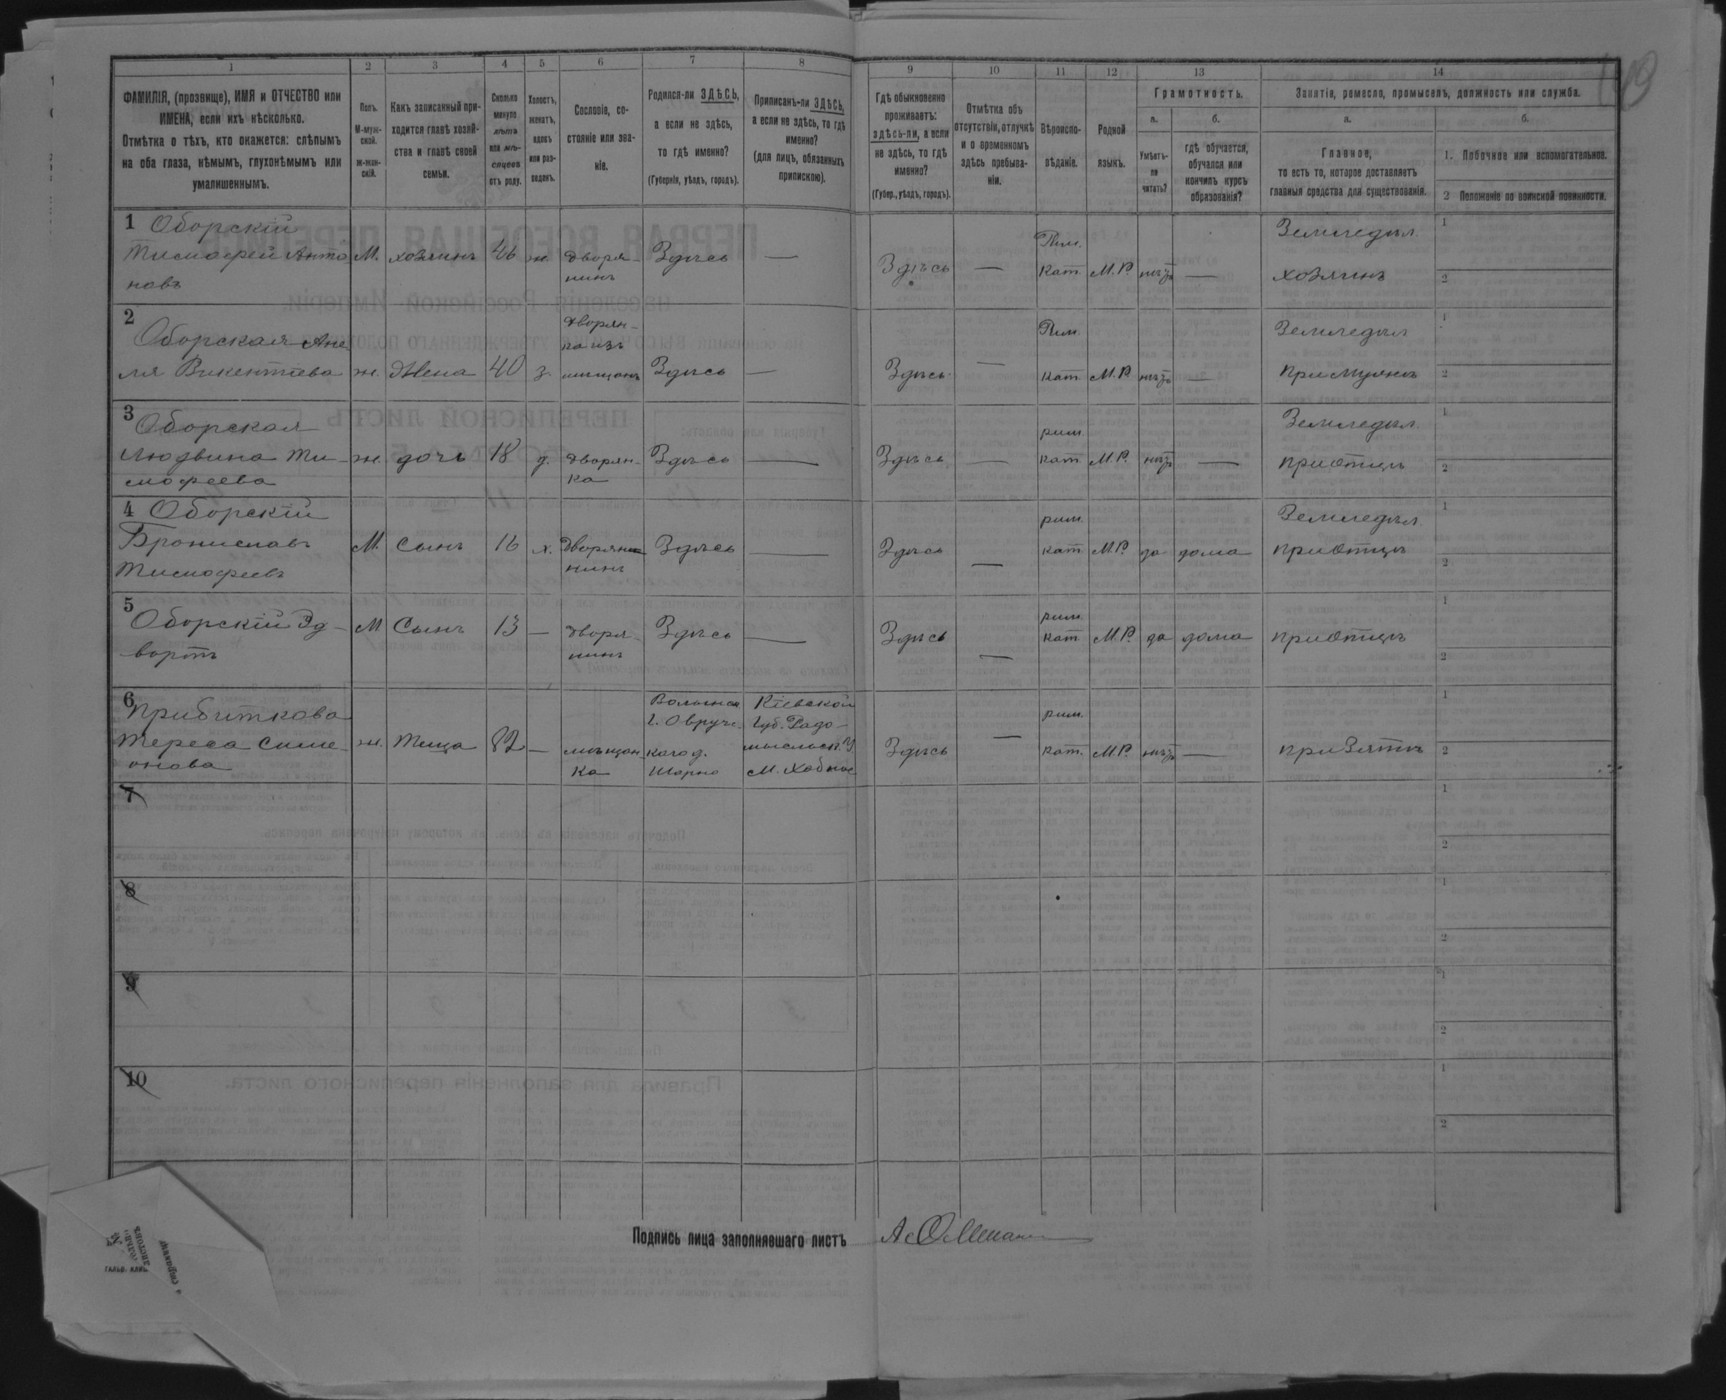 1 2 3 4 5 6 7 8 9 10 11 12 13 14
ФАМИЛІЯ, (прозвище), ИМЯ и ОТЧЕСТВО или
ИМЕНА, если ихъ нѣсколько.
Отмѣтка о тѣхъ, кто окажется: слѣпымъ
на оба глаза, нѣмымъ, глухонѣмымъ или
умалишеннымъ.
Полъ.
М-муж-
ской.
ж-жен-
скій.
Какъ записанный при-
ходится главѣ хозяй-
ства и главѣ своей
семьи.
Сколько
минуло
лѣтъ
или мѣ-
сяцевъ
отъ роду.
Холостъ,
женатъ,
вдовъ
или раз-
веденъ.
Сословіе, со-
стояніе или зва-
ніе.
Родился-ли ЗДѢСЬ,
а если не здѣсь,
то гдѣ именно?
(Губернія, уѣздъ, городъ).
Приписанъ-ли ЗДѢСЬ,
а если не здѣсь, то гдѣ
именно?
(для лицъ, обязанныхъ
припискою).
Гдѣ обыкновенно
проживаетъ:
здѣсь-ли, а если
не здѣсь, то гдѣ
именно?
(Губер., уѣздъ, городъ).
Отмѣтка объ
отсутствіи, отлучкѣ
и о временномъ
здѣсь пребыва-
ніи.
Вѣроиспо-
вѣданіе.
Родной
языкъ.
Грамотность.
а.
Умѣетъ-
ли
читать?
б.
гдѣ обучается,
обучался или
кончилъ курсъ
образованія?
Занятіе, ремесло, промыселъ, должность или служба.
а.
Главное,
то есть то, которое доставляетъ
главныя средства для существованія.
б.
1. Побочное или вспомогательное.
2 Положеніе по воинской повинности.
1 Оборскій
Тимофей Анто
новъ
М. хозяинъ 46 ж дворя-
нинъ
Здѣсь —
Здѣсь —
Рим.
кат. М.Р. нѣтъ —
Земледѣл.
хозяинъ
1
2
2
Оборская Ане
ля Викентіева
ж. Жена 40 з.
дворян-
ка изъ
мѣщанъ
Здѣсь —
Здѣсь —
Рим.
кат. М.Р. нѣтъ —
Земледѣл
при мужѣ
1
2
3
Оборская
Людвина Ти-
мофеева
ж. дочь 18 д. дворян-
ка
Здѣсь —
Здѣсь —
рим.
кат М.Р. нѣтъ —
Земледѣл.
при отцѣ
1
2
4 Оборскій
Брониславъ
Тимофеевъ
М. Сынъ 16 х.
нинъ
Здѣсь —
Здѣсь —
рим.
кат М.Р. да дома
Земледѣл.
при отцѣ
1
2
5
Оборскій Эд-
вартъ
М Сынъ 13 — дворя-
нинъ
Здѣсь —
Здѣсь —
рим.
кат М.Р. да дома
при отцѣ
1
2
6
Прибиткова
Тереса Симе-
онова
ж. Теща 82 — мѣщан
ка
Г. Овруч-
Кіевской
Губ. Радо-
Здѣсь —
рим.
кат. М.Р. нѣтъ —
при зятѣ
1
2
7
1
2
8
1
2
9
1
2
10
1
2
Подпись лица заполнявшаго листъ